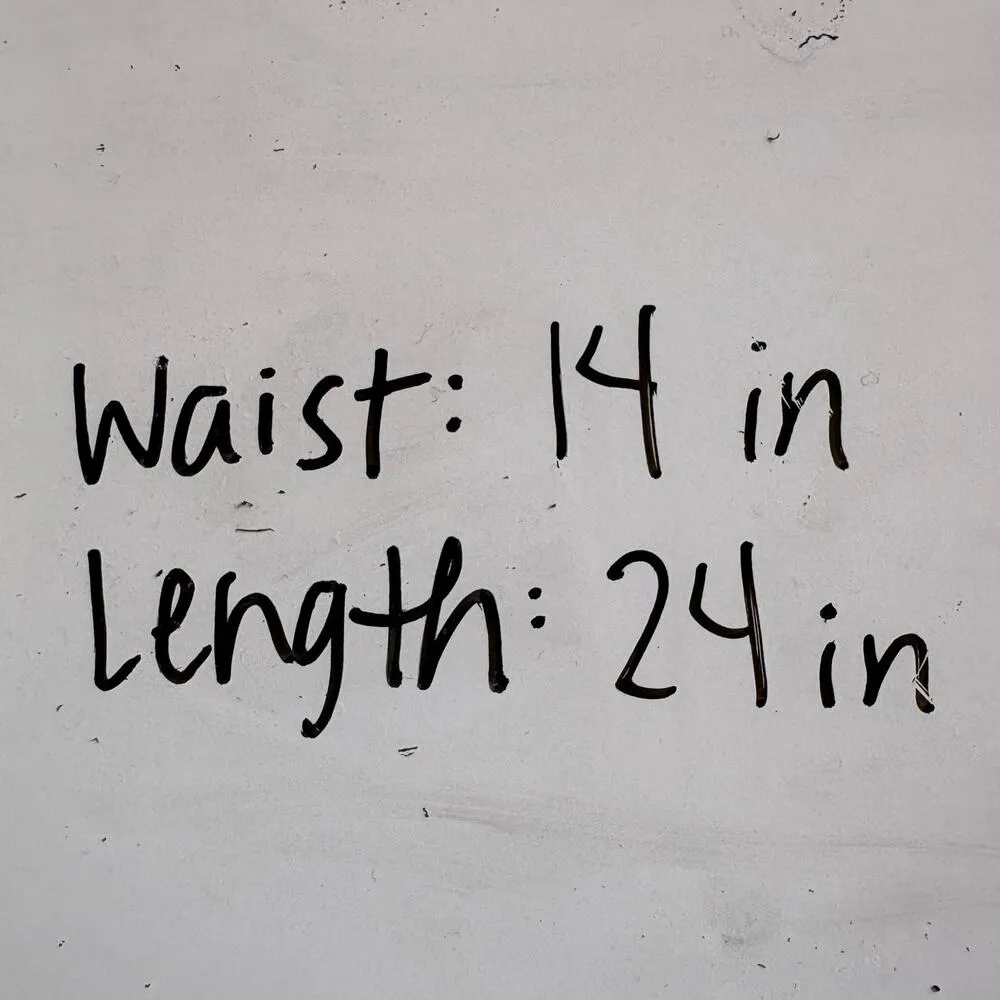 Waist: 14 in
Length: 24 in